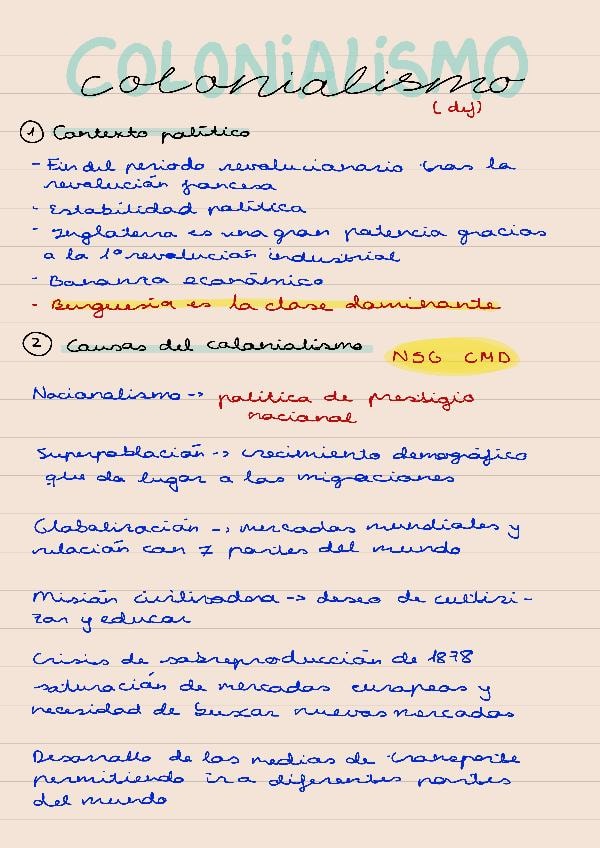 COLONiALiSMO
colonialismo
(def)
1 Contexto político
- Fin del periodo revolucionario tras la
revolución francesa
- Estabilidad política
- Inglaterra es una gran potencia gracias
a la 1º revolución industrial
- Bonanza económico
- Burguesía es la clase dominante
2 Causas del colonialismo
NSG CMD
Nacionalismo -> política de prestigio
nacional
Superpoblación -> crecimiento demográfico
que da lugar a las migraciones
Globalización -> mercados mundiales y
relación con ≠ partes del mundo
Misión civilizadora -> deseo de cultiri-
zar y educar
Crisis de sobreproducción de 1878
saturación de mercados europeos y
necesidad de buscar nuevos mercados
Desarrollo de los medios de transporte
permitiendo ir a diferentes partes
del mundo